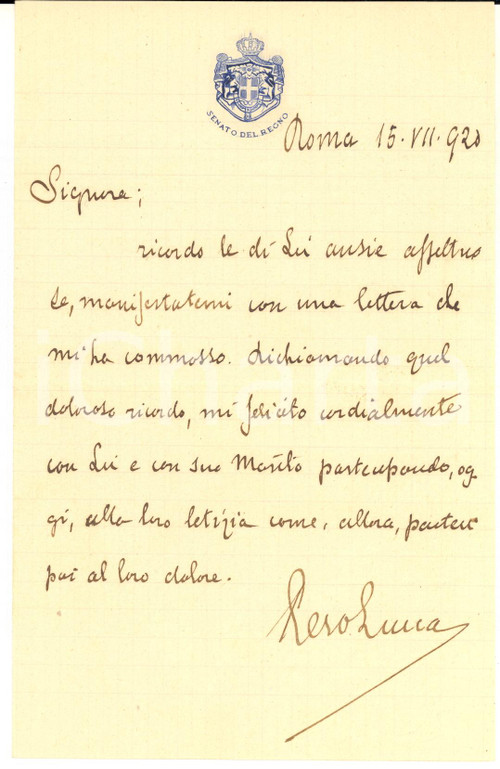 SENATO DEL REGNO
Roma 15. VII. 920
Signora;
ricordo le di Lei ansie affettuo
se, manifestatemi con una lettera che
mi ha commosso. Richiamando quel
doloroso ricordo, mi felicito cordialmente
con Lei e con suo Marito partecipando, og-
gi, alla loro letizia come, allora, parteci
pai al loro dolore.